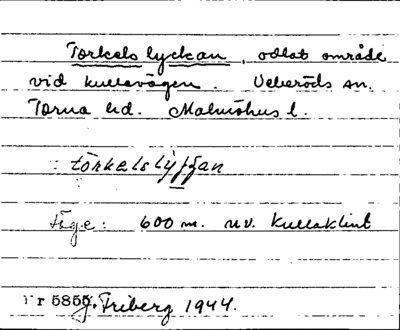 Torkelslyckan, odlat område
vid kullavägen. Veberöds sn.
Torna hd. Malmöhus l.
: törkelslỳjjan
Läge: 600 m. nv. Kullaklint
Nr 5855. J. Friberg 1944.